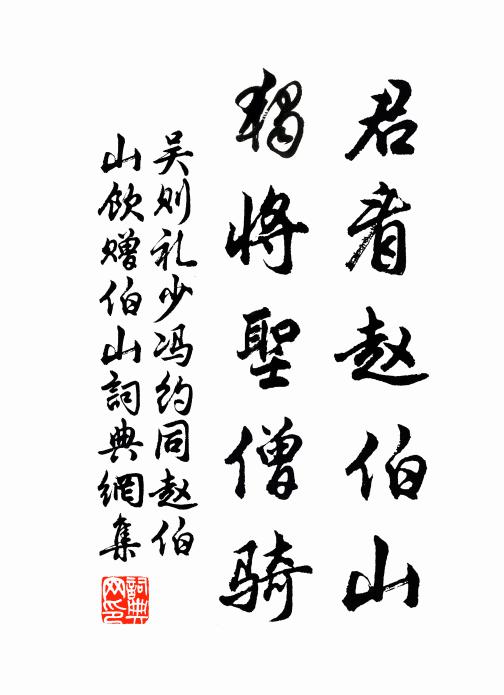 君看赵伯山
独将聖僧骑
吴则礼少冯约同赵伯
山飲赠伯山詞典網集
詞典网印